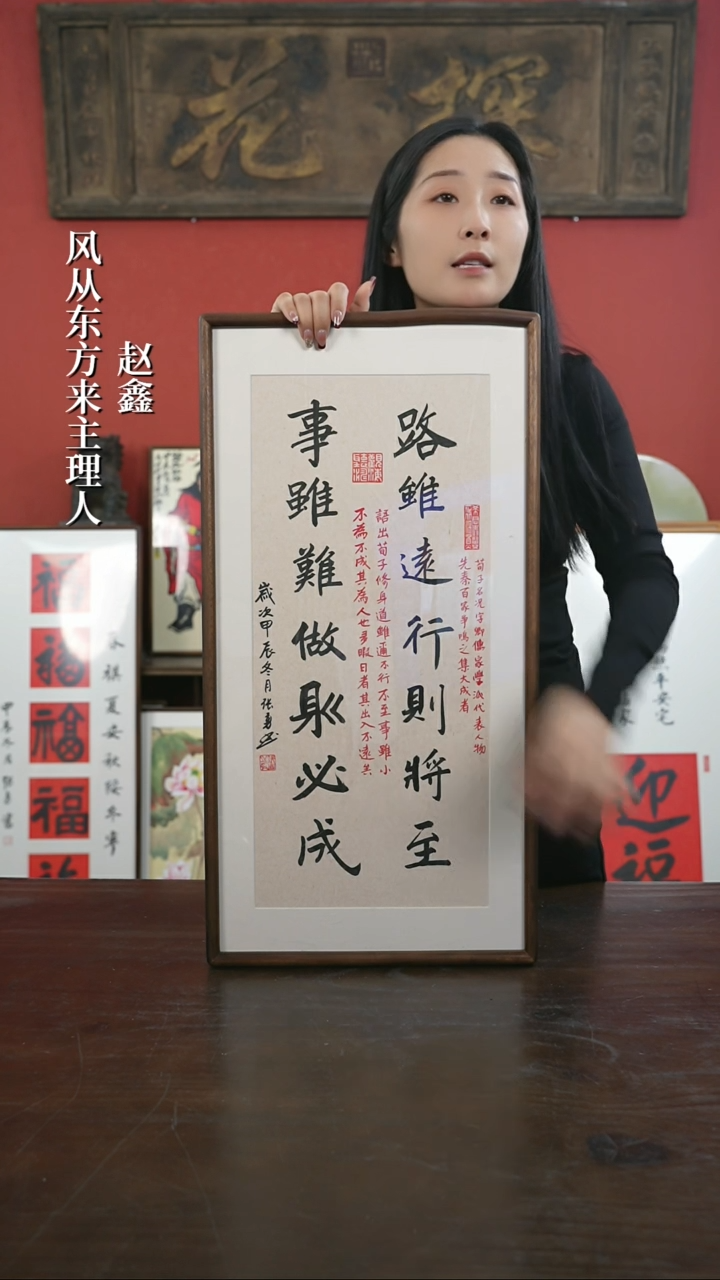 探花
风从东方来主理人
赵鑫
路雖遠行則將至
事雖難做則必成
荀子名況字卿儒家學派代表人物
先秦百家爭鳴之集大成者
語出荀子修身道雖邇不行不至事雖小
不為不成其為人也多暇日者其出入不遠矣
歲次甲辰冬月張勇書
福
福
福
福
春祺夏安秋綏冬寧
平安宅
迎福